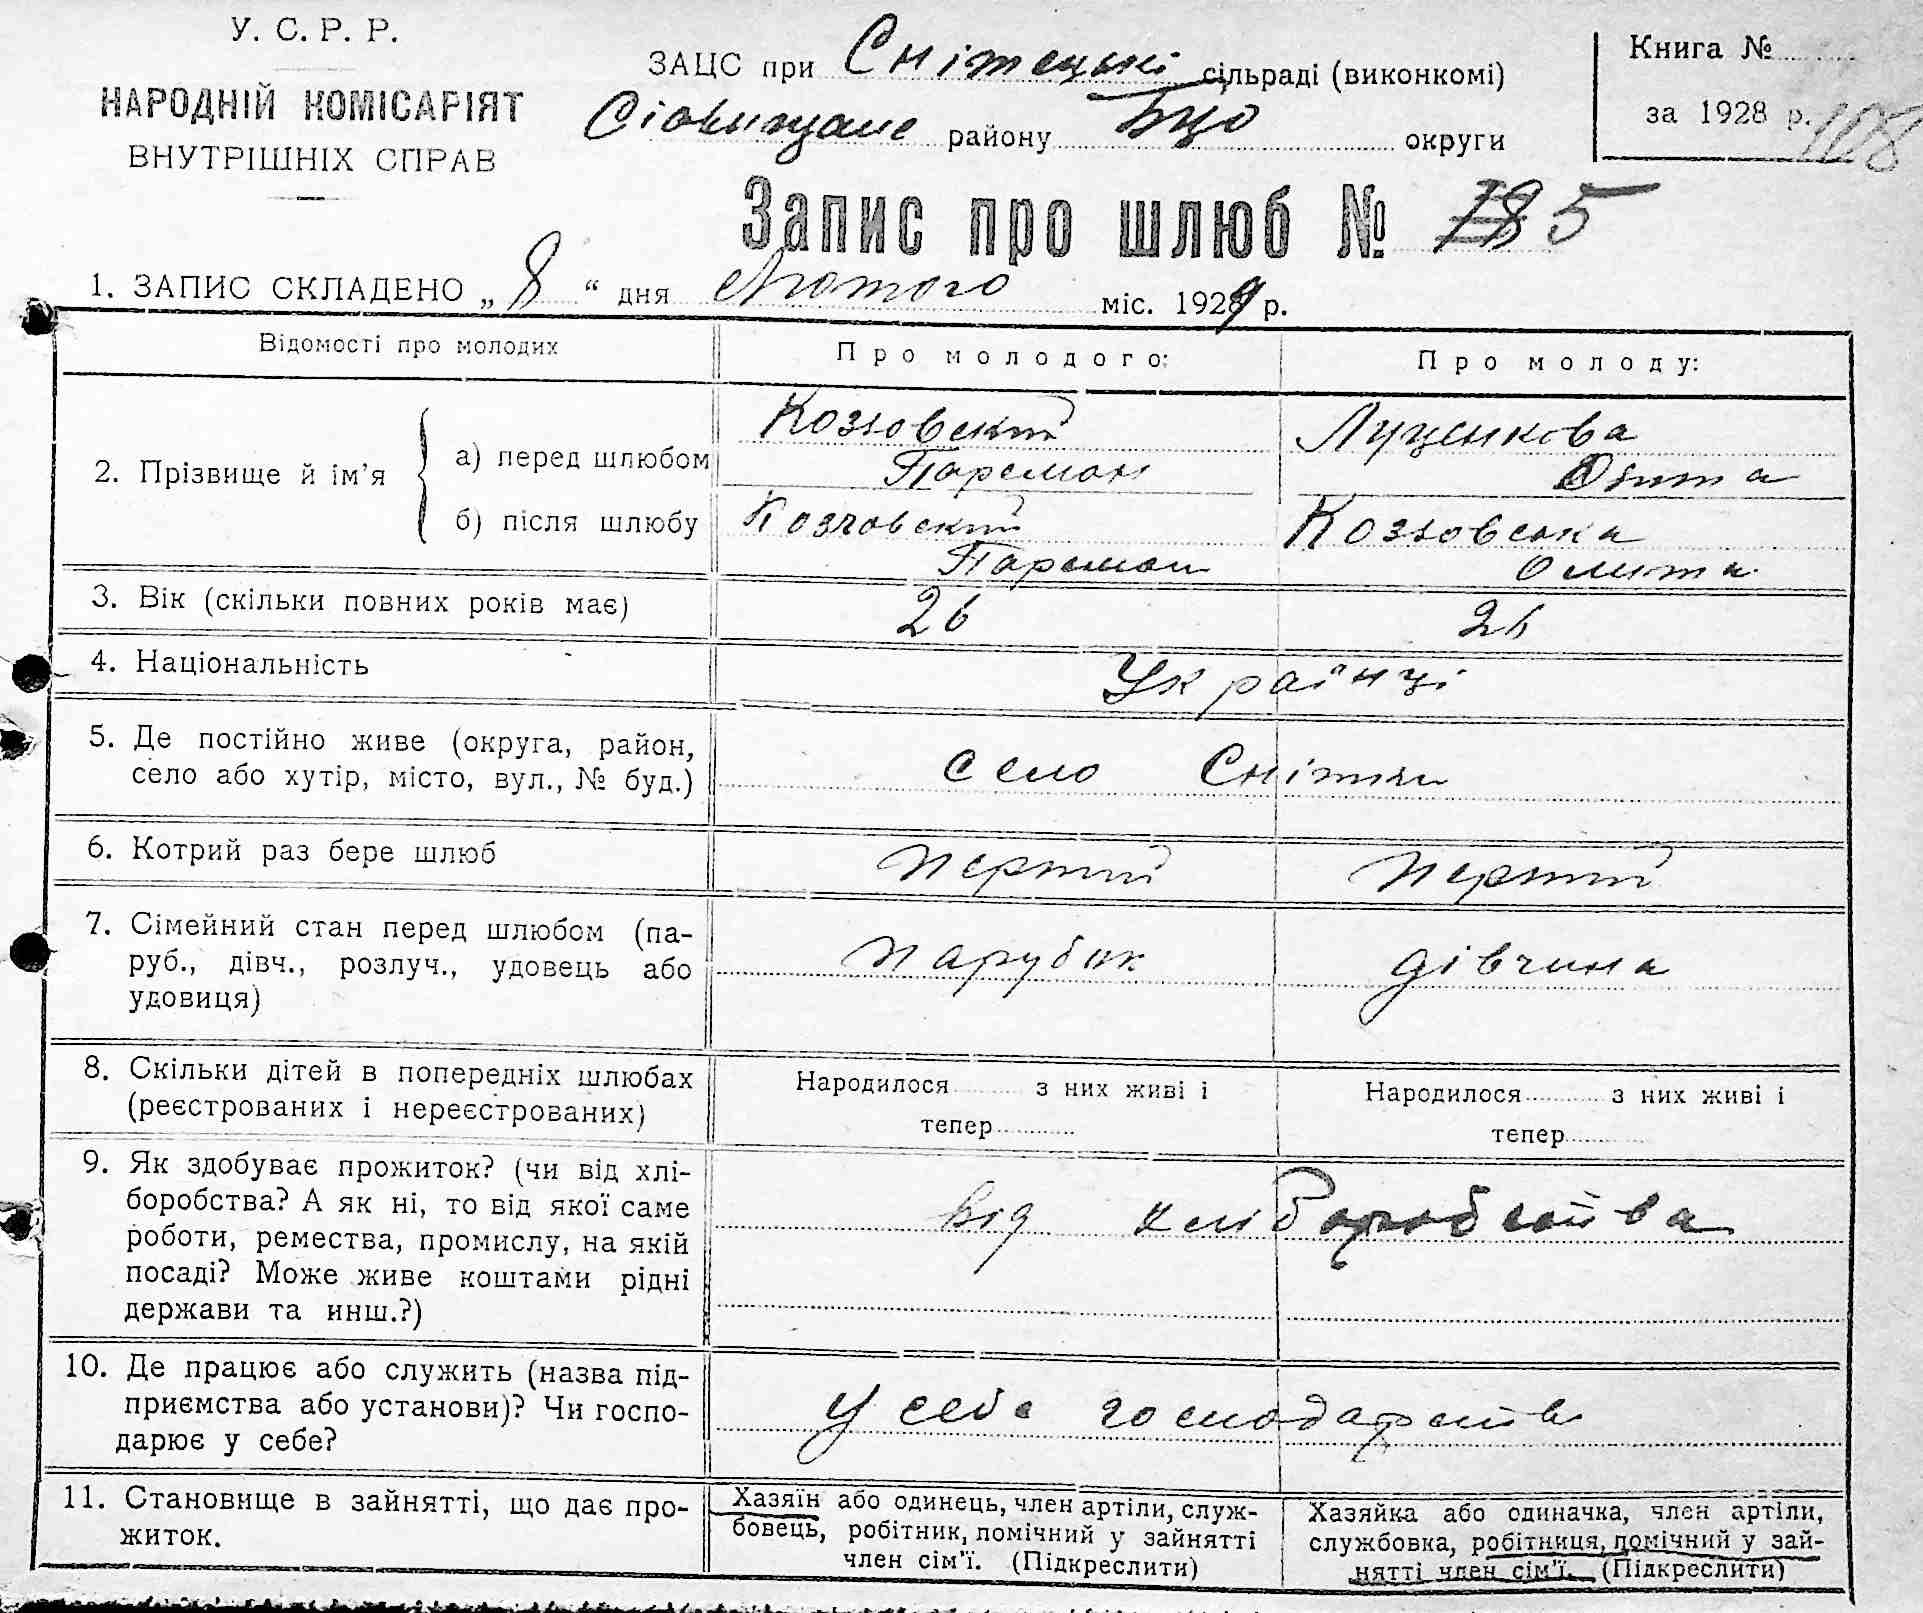 У. С. Р. Р.
НАРОДНІЙ КОМІСАРІЯТ
ВНУТРІШНІХ СПРАВ
ЗАЦС при Сніжецькі сільраді (виконкомі)
району БЦо округи
Книга №
за 1928 р.
108
Запис про шлюб № 5
1. ЗАПИС СКЛАДЕНО „ 8 “ дня Лютого міс. 1929 р.
Відомості про молодих
Про молодого:
Про молоду:
2. Прізвище й ім’я
а) перед шлюбом
Козловский
Парамон
Луценкова
б) після шлюбу
Козловский
Парамон
Козловська
3. Вік (скільки повних років має)
26
26
4. Національність
Українці
5. Де постійно живе (округа, район,
село або хутір, місто, вул., № буд.)
село Сніжки
6. Котрий раз бере шлюб
первий
первий
7. Сімейний стан перед шлюбом (па-
руб., дівч., розлуч., удовець або
удовиця)
парубок
дівчина
8. Скільки дітей в попередніх шлюбах
(реєстрованих і нереєстрованих)
Народилося з них живі і
тепер
Народилося з них живі і
тепер
9. Як здобуває прожиток? (чи від хлі-
боробства? А як ні, то від якої саме
роботи, ремества, промислу, на якій
посаді? Може живе коштами рідні
держави та инш.?)
від хліборобства
10. Де працює або служить (назва під-
приємства або установи)? Чи госпо-
дарює у себе?
у себе господарстві
11. Становище в зайнятті, що дає про-
житок.
Хазяїн або одинець, член артіли, служ-
бовець, робітник, помічний у зайнятті
член сім’ї. (Підкреслити)
Хазяйка або одиначка, член артіли,
службовка, робітниця, помічний у зай-
нятті член сім’ї. (Підкреслити)